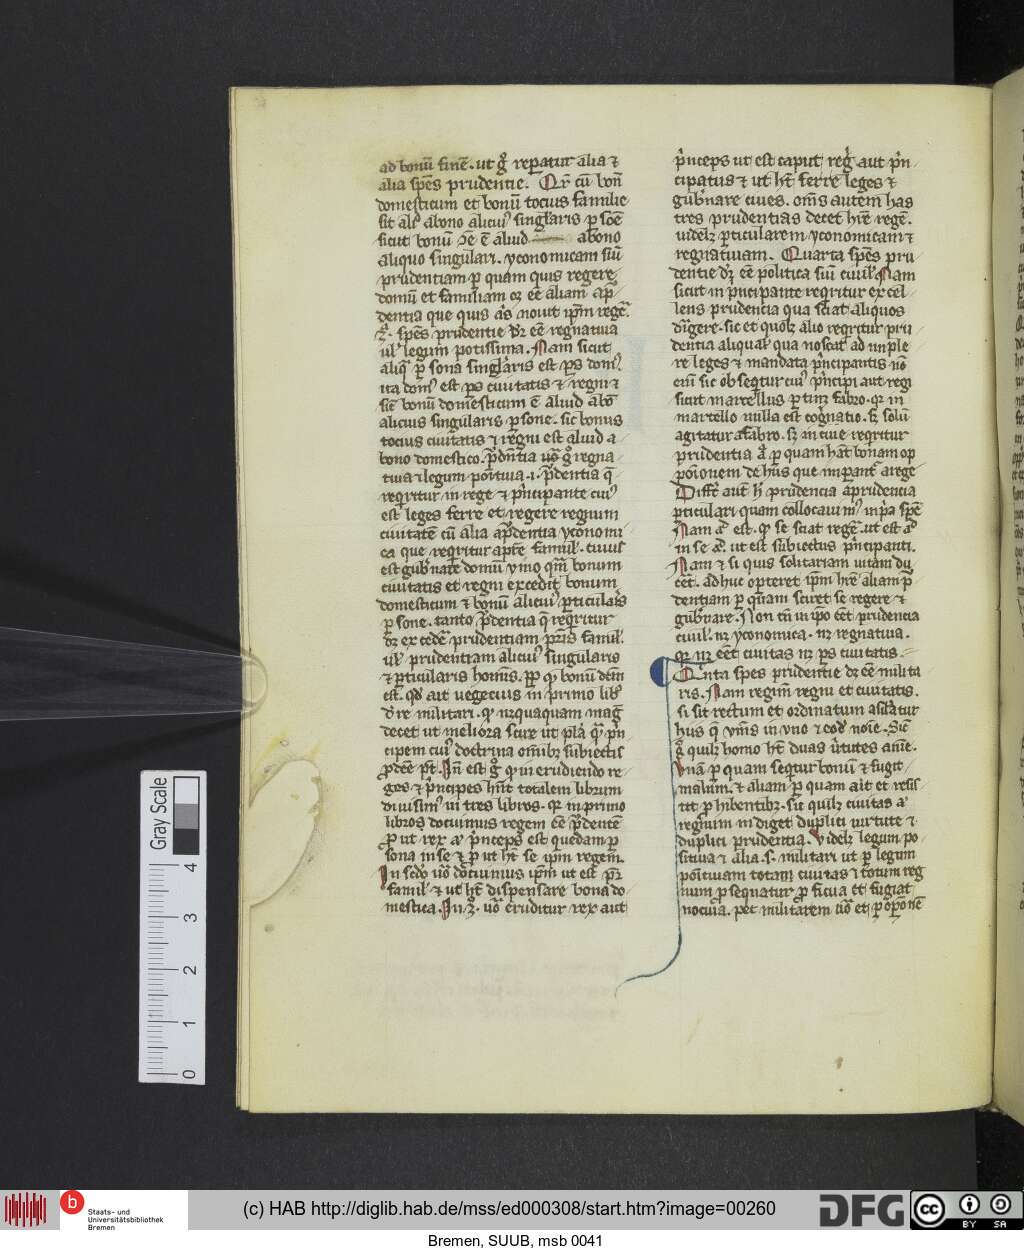 ad bonū finē. ut gͦ reperatur alia ⁊
alia spēs prudentie. Qr̄ cū bon̄
domesticum et bonū tocius familie
sit ali᷒ abono alicui᷒ singl̄aris ꝑsōe
sicut bonū ōe ē aliud abono
aliquo singulari. yconomicam siū
prudentiam ꝑ quam quis regere
domū et familiam oꝫ eē aliam ap̄
dentia que quis a᷒s nouit ip̄m regē.
3ᵃ. spēs prudentie dꝫ eē regnatiua
ul̓ legum potissima. Nam sicut
aliqͣ ꝑsona singl̓aris est ps dom᷒.
ita dom᷒ est ps ciuitatis ⁊ regni ⁊
sic̄ bonū domesticum ē aliud abo᷒
alicuius singularis ꝑsone. sic bonus
tocius ciuitatis ⁊ regni est aliud a
bono domestico. p̄dn̄tia gͦ regna
tiua ⁊ legum poītiua .i. p̄dentia q̄
reqͥritur in rege ⁊ pͥncipante cui᷒
est leges ferre et regere regnum
ciuitatē cū alia ap̄dentia yconomi
ca que reqͥritur apt̄e famil̓. cuius
est gub̓nare domū ymo qm̄ bonum
ciuitatis et regni excedit bonum
domesticum ⁊ bonū alicui᷒ ꝑticularis
ꝑsone. tanto p̄dentia q̄ reqͥritur
dꝫ excedē prudentiam pr̄is famil̓.
ul̓ prudentiam alicui᷒ singularis
⁊ ꝑticularis homīs. ꝓp qͦ bonū dēm
est. qd̓ ait uegecius in primo lib̓
d̓ re militari. qͦ nequaquam mag᷒
decet ut meliora scire ut pla᷒ qͣ pͥn
cipem cui᷒ doctrina omībꝫ subiectis
ꝓdēē pt̄. In̄ est gͦ qͦ in erudiendo re
ges ⁊ pͥncipes hn̄t totalem librum
diuisim᷒ in tres libros. qr in primo
libros docuimus regem eē p̄dentē
ꝓut rex aͭ pͥnceps est quedam ꝑ
sona in se ⁊ ꝓut ht̄ seip̄m regere.
In sc̄do uͦ docuimus ip̄m ut est pr̄
famil̓ ⁊ ut ht̄ dispensare bona do
mestica. In 3ͦ. uͦ eruditur rex aut
pͥnceps ut est caput regͥ aut pͥn
cipatus ⁊ ut ht̄ ferre leges ⁊
gub̓nare ciues. om̄s autem has
tres prudentias decet hr̄e regē.
uidelꝫ ꝑticularem yconomicam ⁊
regnatiuam. Quarta spēs pru
dentie dꝫ eē politica siū ciuil̓. Nam
sicut in pͥncipante reqͥritur excel
lens prudencia qua sciat aliquos
diͥgere. sic et quolꝫ alio reqͥritur pru
dentia aliqua qua noscat adimple
re leges ⁊ mandata pͥncipantis nō
enī sic obseqͥtur ciui᷒ pͥncipi aut regi
sicut martellus ꝑtinꝫ fabro. qr in
martello nulla est cognatio. sꝫ solū
agitatur afabro. sꝫ in ciue reqͥritur
prudentia aͣ ꝑ quam hāt bonam op
poīonem de hiis que imꝑant᷒ arege.
Differt aut̄ h̄ prudencia aprudencia
ꝑticulari quam collocauim᷒ in pͥa spē
Nam aͩ est. qͦ se sciat regē. ut est aͩ
in se aͩ. ut est subiectus pͥncipanti.
Nam ⁊ si quis solitariam uitam du
cēt. adhuc opteret ip̄m hr̄e aliam ꝑ
dentiam ꝑ quam sciret se regere ⁊
gub̓nare. Non tn̄ in ip̄o eēt prudencia
ciuil̓. nꝫ yconomica. nꝫ regnatiua.
qr nꝫ eēt ciuitas nꝫ ps ciuitatis.
Quīta spēs prudentie dꝫ eē milita
ris. Nam regīm regni et ciuitatis.
si sit rectum et ordinatum assīlatur
hiis q̄ vnīs in vno ⁊ eōd noīe. Sic̄
gͦ quilꝫ homo ht̄ duas uͥtutes aīe.
vnā ꝑ quam seqͥtur bonū ⁊ fugit
malum. ⁊ aliam ꝑ quam ait et resis
tit ꝓhibentibꝫ. sic quilꝫ ciuitas aͭ
regnum indiget duplici uirtute ⁊
duplici prudentia. Videlꝫ legum po
sitiua ⁊ alia .s. militari ut ꝑ legum
poītiuam totam ciuitas ⁊ totum reg
num ꝓsequatur ꝓficua et fugiat
nociua. ꝑet militarem uͦ et ꝑ oꝑōnē
Gray Scale
4
3
2
1
0
Staats- und
Universitätsbibliothek
Bremen
(c) HAB http://diglib.hab.de/mss/ed000308/start.htm?image=00260
DFG
cc BY SA
Bremen, SUUB, msb 0041